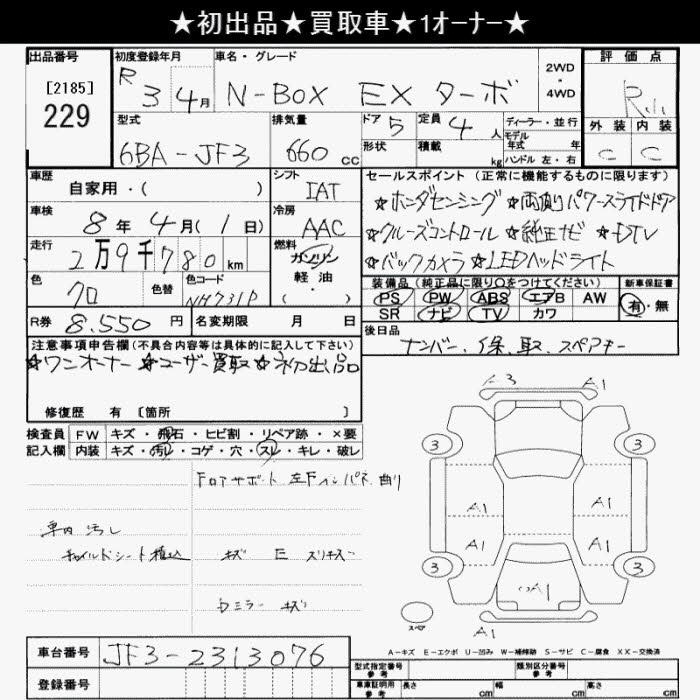 ★初出品★買取車★1オーナー★
出品番号 初度登録年月 車名・グレード 2WD・4WD 評価点
[2185]
229
R 3 4月 N-BOX EX ターボ R
外装 内装
C C
型式 排気量 ドア 5 定員 4人 ディーラー・並行
6BA-JF3 660 cc 形状 積載 kg モデル年式 年 ハンドル 左・右
車歴 自家用・( ) シフト IAT
車検 8年 4月( 1日) 冷房 AAC
走行 2万9千780km 燃料 ガソリン 軽油 ( ・ )
色 クロ 色替 色コード NH731P
R券 8.550円 名変期限 月 日
セールスポイント(正常に機能するものに限ります)
☆ホンダセンシング ☆両側パワースライドドア
☆クルーズコントロール ☆純正ナビ ☆DTV
☆バックカメラ ☆LEDヘッドライト
装備品(純正品に限り○をつけてください) 新車保証書
PS PW ABS エアB AW 有・無
SR ナビ TV カワ
後日品
ナンバー、保、取、スペアキー
注意事項申告欄(不具合内容等は具体的に記入して下さい)
☆ワンオーナー ☆ユーザー買取 ☆初出品
修復歴 有 〔箇所 〕
検査員 FW キズ・飛石・ヒビ割・リペア跡・×要
記入欄 内装 キズ・汚レ・コゲ・穴・スレ・キレ・破レ
左Fインパネ 曲り
車内 汚レ
チャイルドシート積込 キズ E スリキズ
ウミラー キズ
A3 A1
3 3
A1 A1
A1 A1
3 3
A1
スペア A1
A-キズ E-エクボ U-凹み W-補修跡 S-サビ C-腐食 XX-交換済
車台番号 JF3-2313076
登録番号
型式指定番号 参考 類別区分番号 参考
車庫証明用 参考 長さ cm 幅 cm 高さ cm